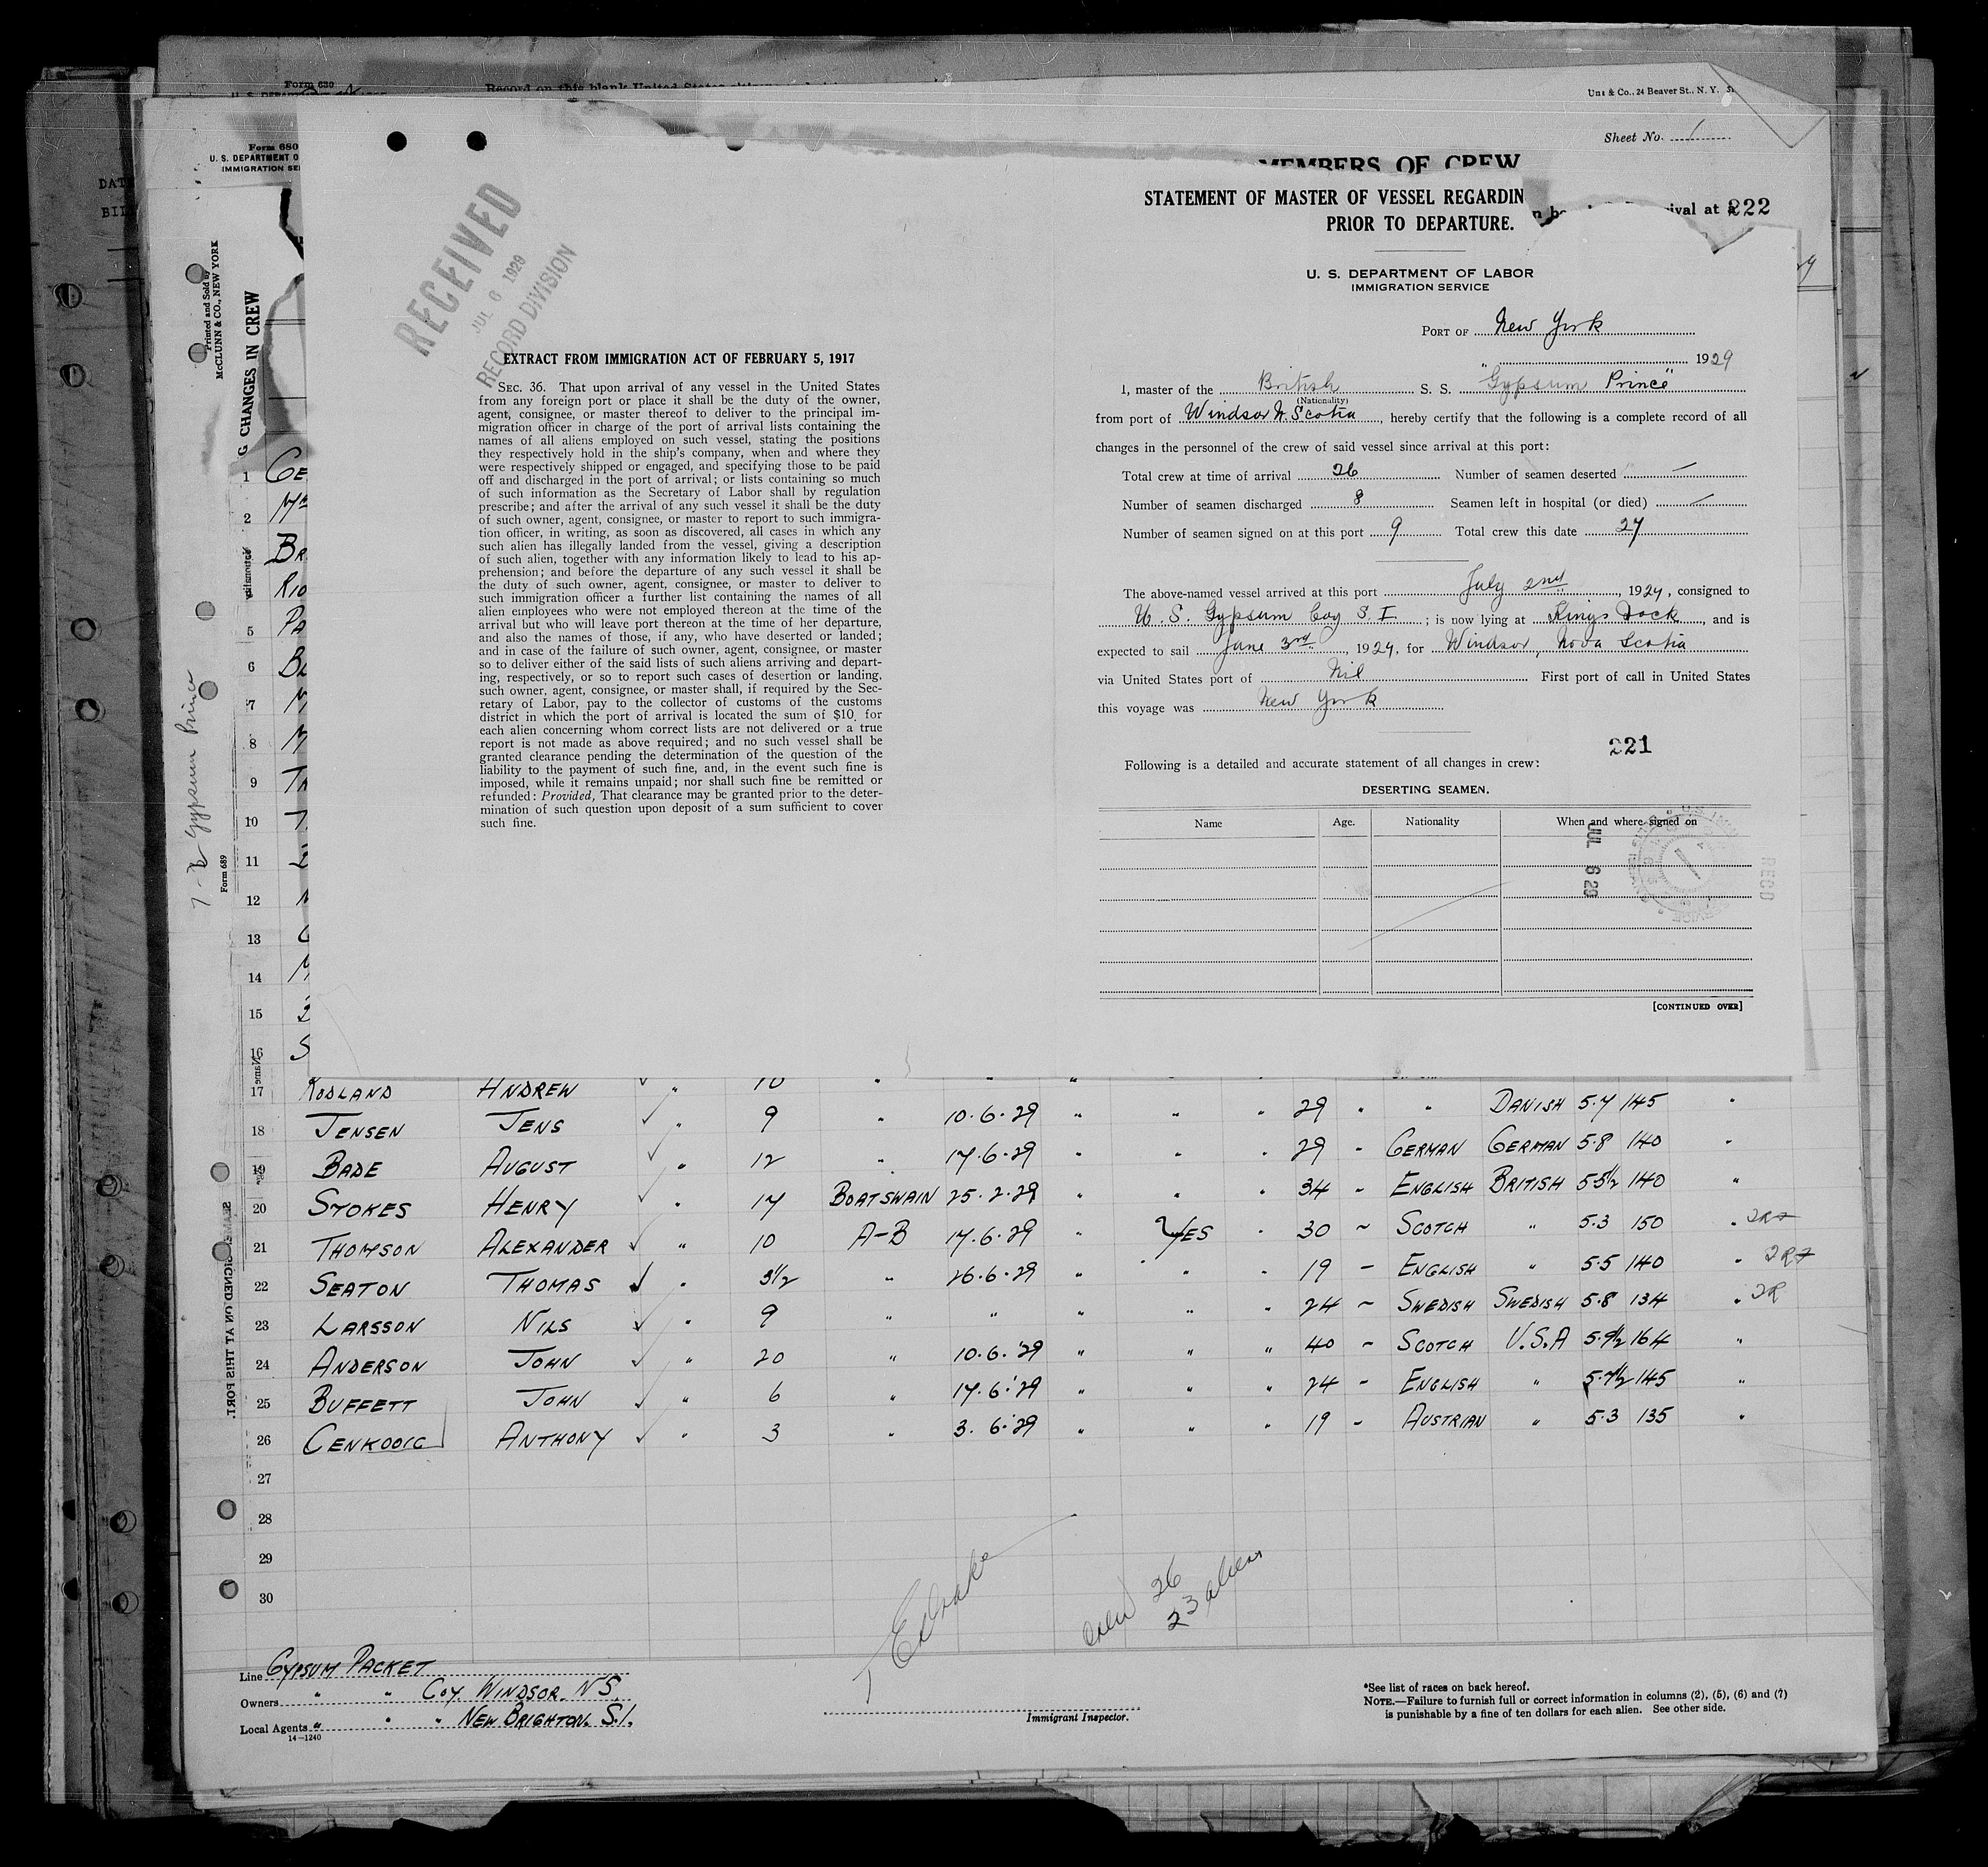 Form 630
Record on this blank United States
24 Beaver St., N. Y.
Sheet No. 1
Form 680
U. S. DEPARTMENT O
IMMIGRATION SE
MEMBERS OF CREW
ival at 222
DAT
BIL
Printed and Sold by
McCLUNN & CO., NEW YORK
G CHANGES IN CREW
7-2 Gypsum Prince
Form 689
SIGNED ON AT THIS PORT.
RECEIVED
JUL 6 1929
RECORD DIVISION
EXTRACT FROM IMMIGRATION ACT OF FEBRUARY 5, 1917
SEC. 36. That upon arrival of any vessel in the United States
from any foreign port or place it shall be the duty of the owner,
agent, consignee, or master thereof to deliver to the principal im-
migration officer in charge of the port of arrival lists containing the
names of all aliens employed on such vessel, stating the positions
they respectively hold in the ship's company, when and where they
were respectively shipped or engaged, and specifying those to be paid
off and discharged in the port of arrival; or lists containing so much
of such information as the Secretary of Labor shall by regulation
prescribe; and after the arrival of any such vessel it shall be the duty
of such owner, agent, consignee, or master to report to such immigra-
tion officer, in writing, as soon as discovered, all cases in which any
such alien has illegally landed from the vessel, giving a description
of such alien, together with any information likely to lead to his ap-
prehension; and before the departure of any such vessel it shall be
the duty of such owner, agent, consignee, or master to deliver to
such immigration officer a further list containing the names of all
alien employees who were not employed thereon at the time of the
arrival but who will leave port thereon at the time of her departure,
and also the names of those, if any, who have deserted or landed;
and in case of the failure of such owner, agent, consignee, or master
so to deliver either of the said lists of such aliens arriving and depart-
ing, respectively, or so to report such cases of desertion or landing,
such owner, agent, consignee, or master shall, if required by the Sec-
retary of Labor, pay to the collector of customs of the customs
district in which the port of arrival is located the sum of $10 for
each alien concerning whom correct lists are not delivered or a true
report is not made as above required; and no such vessel shall be
granted clearance pending the determination of the question of the
liability to the payment of such fine, and, in the event such fine is
imposed, while it remains unpaid; nor shall such fine be remitted or
refunded: Provided, That clearance may be granted prior to the deter-
mination of such question upon deposit of a sum sufficient to cover
such fine.
STATEMENT OF MASTER OF VESSEL REGARDIN
PRIOR TO DEPARTURE.
U. S. DEPARTMENT OF LABOR
IMMIGRATION SERVICE
PORT OF New York
1929
I, master of the British S. S. "Gypsum Prince"
(Nationality)
from port of Windsor N. Scotia, hereby certify that the following is a complete record of all
changes in the personnel of the crew of said vessel since arrival at this port:
Total crew at time of arrival 26 Number of seamen deserted —
Number of seamen discharged 8 Seamen left in hospital (or died) —
Number of seamen signed on at this port 9 Total crew this date 27
The above-named vessel arrived at this port July 2nd, 1929, consigned to
U. S. Gypsum Coy S. I.; is now lying at Kings Dock, and is
expected to sail June 3rd, 1929, for Windsor, Nova Scotia
via United States port of Nil First port of call in United States
this voyage was New York
221
Following is a detailed and accurate statement of all changes in crew:
DESERTING SEAMEN.
Name Age. Nationality When and where signed on
JUL 6 29
RECD
[CONTINUED OVER]
1 GE
2
BR
RIO
5 PA
6 BL
7 M
8 M
9 TH
10 T
11
12
13
14 M
15
16 S
17 RODLAND ANDREW " 10 " " " " "
18 JENSEN JENS " 9 " 10.6.29 " " " 29 " " DANISH 5.7 145 "
19 BADE AUGUST " 12 " 17.6.29 " " " 29 - GERMAN GERMAN 5.8 140 "
20 STOKES HENRY " 17 BOATSWAIN 25.2.29 " " " 34 - ENGLISH BRITISH 5-5½ 140 "
21 THOMSON ALEXANDER " 10 A-B 17.6.29 " YES " 30 ~ SCOTCH " 5.3 150 "
22 SEATON THOMAS " 3½ " 26.6.29 " " " 19 - ENGLISH " 5.5 140 "
23 LARSSON NILS " 9 " " " " " 24 ~ SWEDISH SWEDISH 5.8 134 " 2R
24 ANDERSON JOHN " 20 " 10.6.29 " " " 40 - SCOTCH U.S.A 5.9½ 164 "
25 BUFFETT JOHN " 6 " 17.6.29 " " " 24 - ENGLISH " 5.7½ 145 "
26 CENKODIC ANTHONY " 3 " 3.6.29 " " " 19 - AUSTRIAN " 5.3 135 "
27
28
29
30
Crew 26
23 aliens
Line GYPSUM PACKET
Owners " " COY. WINDSOR. N S.
Local Agents " " " NEW BRIGHTON. S.I.
14—1240
Immigrant Inspector.
*See list of races on back hereof.
NOTE.—Failure to furnish full or correct information in columns (2), (5), (6) and (7)
is punishable by a fine of ten dollars for each alien. See other side.